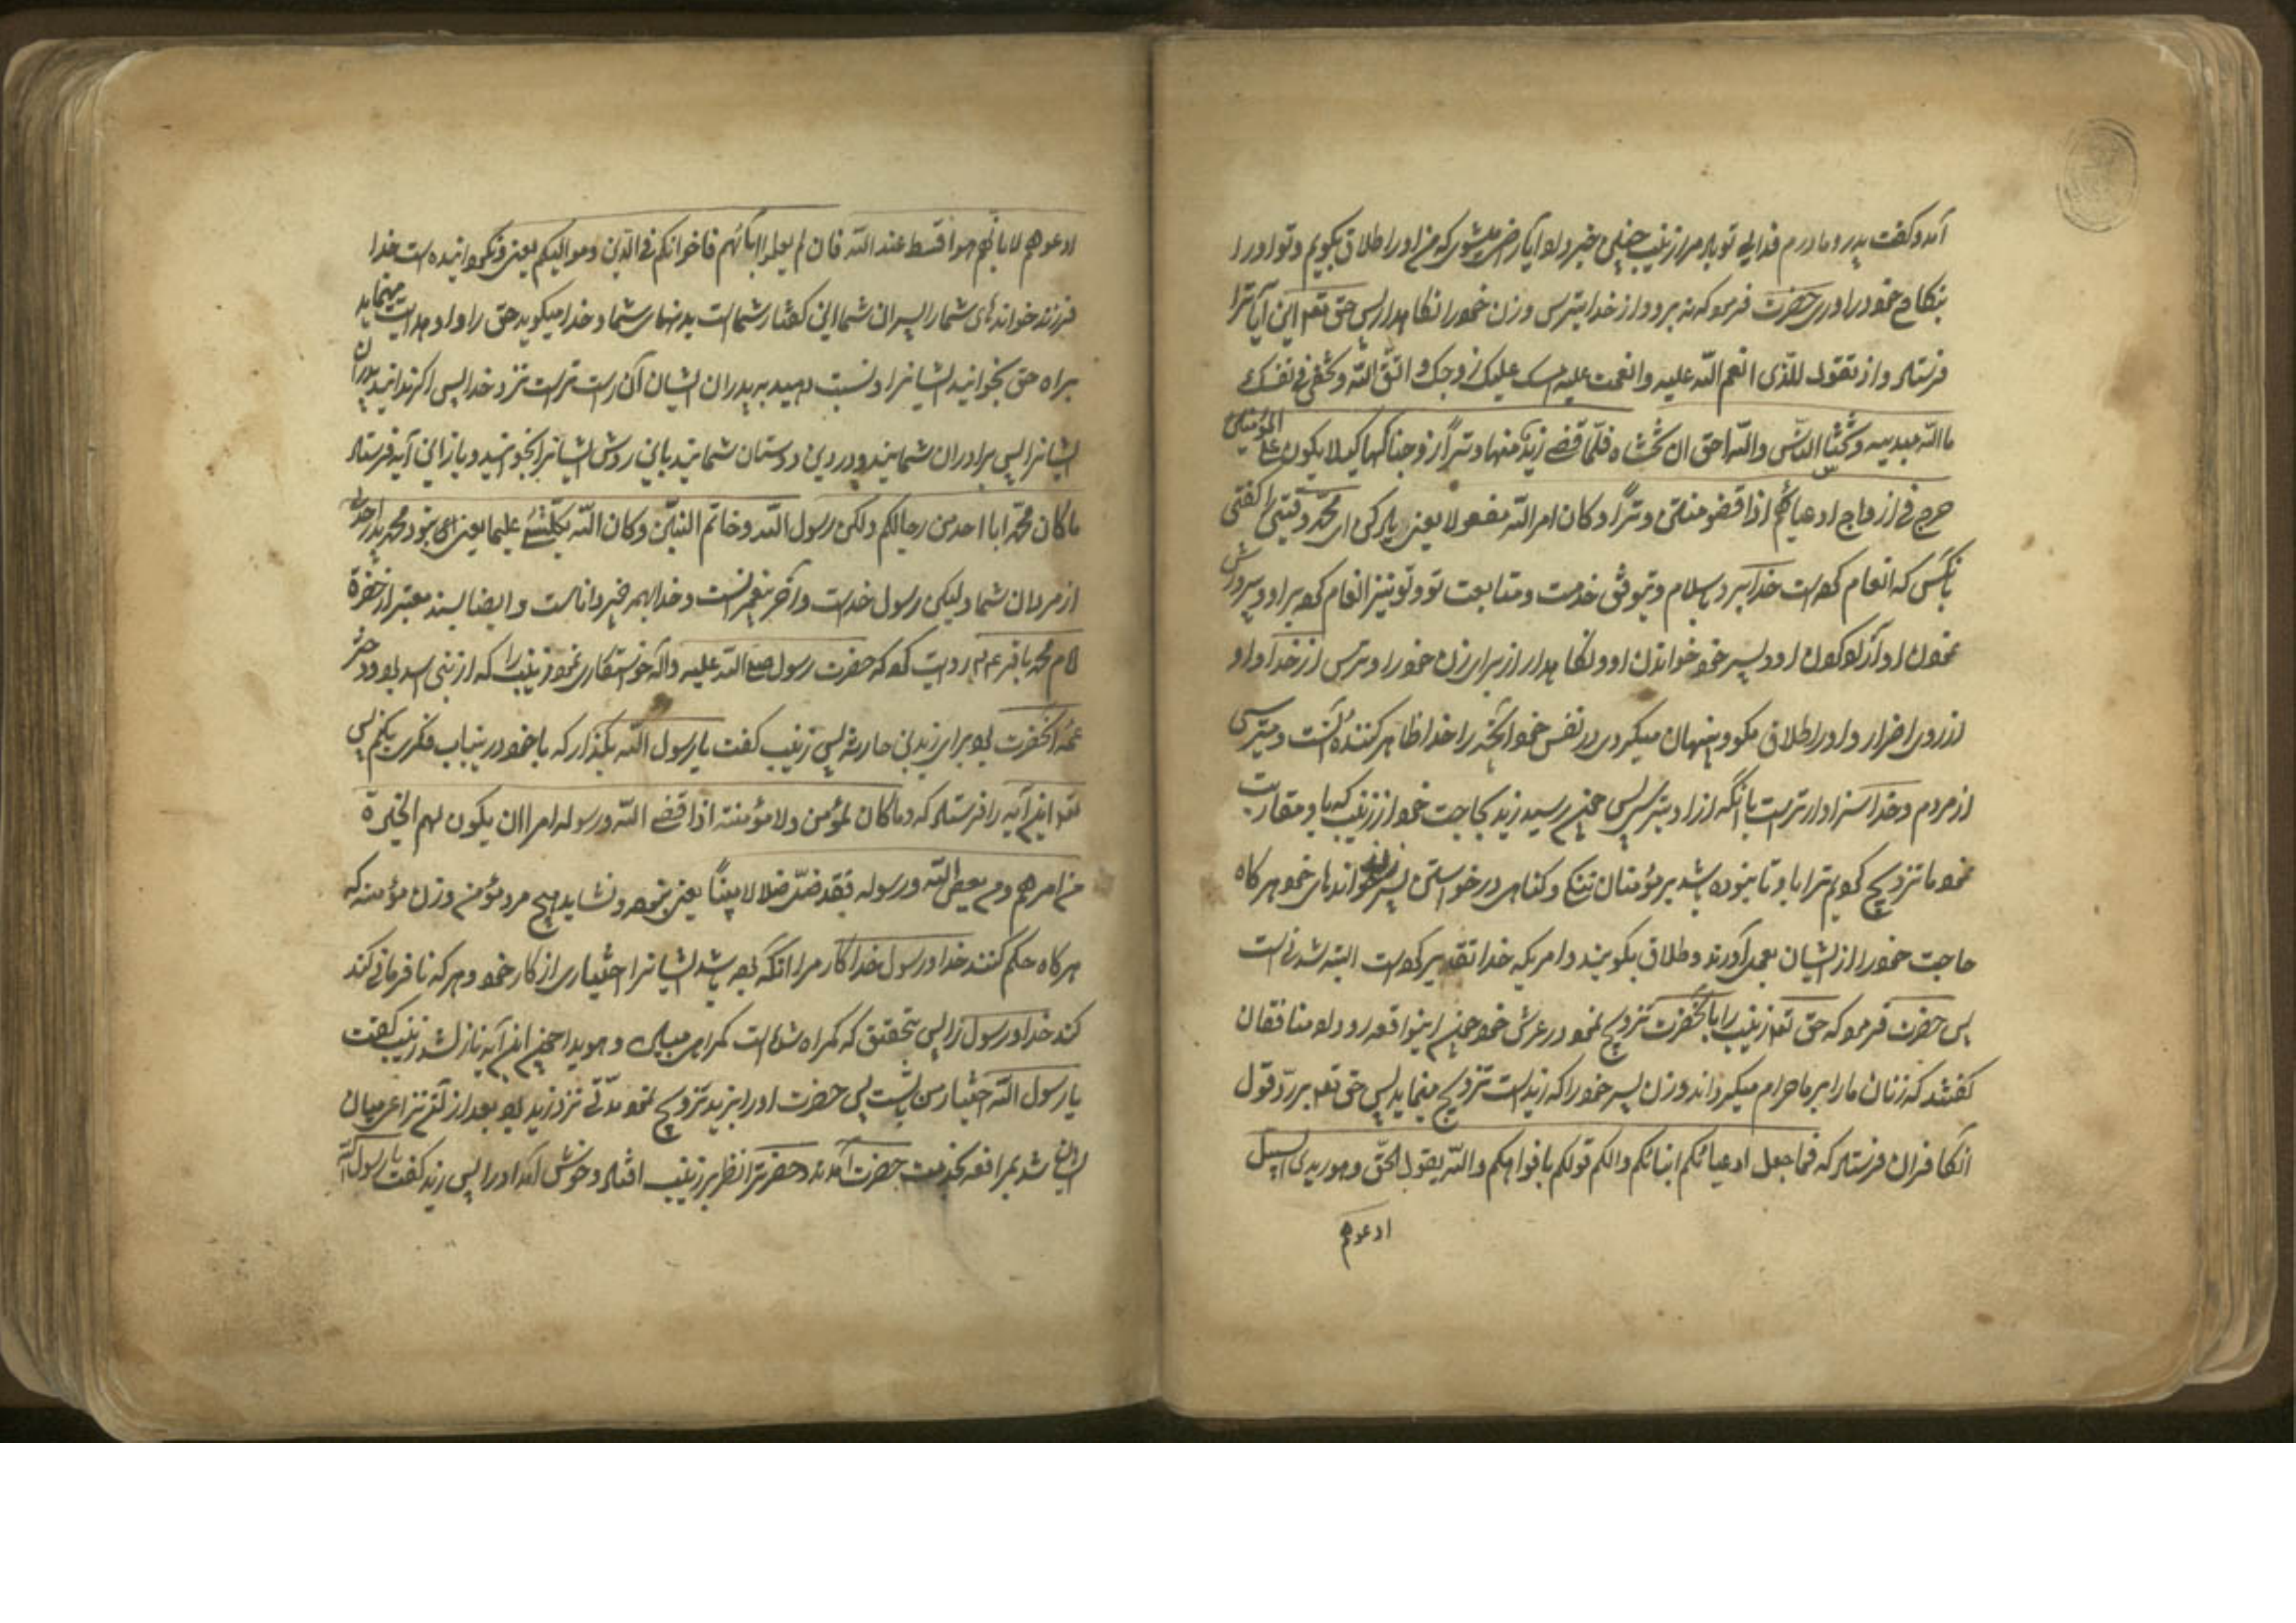 آمد و گفت پدر و مادرم فدای تو باد مرا زینب چنین خبر داد آیا راضی میشوی که من او را طلاق بگویم و تو او را
بنکاح خود درآوری حضرت فرمود که نه برو و از خدا بترس و زن خود را نگاهدار پس حق تعالی این آیات را
فرستاد و اذ تقول للذی انعم الله علیه و انعمت علیه امسک علیک زوجک و اتق الله و تخفی فی نفسک
ما الله مبدیه و تخشی الناس و الله احق ان تخشاه فلما قضی زید منها وترا زوجناکها کیلا یکون علی المؤمنین
حرج فی ازواج ادعیائهم اذا قضو منهن وترا و کان امر الله مفعولا یعنی یاد کن ای محمد وقتی را که گفتی
بآنکس که انعام کرده است خدا بر او باسلام و توفیق خدمت و متابعت تو و تو نیز انعام کرده بر او و پرورش
نمودن او آزاد کردن او و پسر خود خواندن او و نگاهدار از برای زن خود را و بترس از خدا و او
از روی اضرار و او را طلاق مگو و پنهان میکردی در نفس خود آنچه را خدا ظاهر کننده آنست و میترسی
از مردم و خدا سزاوارتر است بآنکه از او بترسی پس چون رسید زید بحاجت خود از زینب که با او مقاربت
نمود ما تزویج کردیم ترا باو تا نبوده باشد بر مؤمنان تنگی و گناهی در خواستن زنان پسر خوانده‌های خود هر گاه
حاجت خود را از ایشان بعمل آورند و طلاق بگویند و امریکه خدا تقدیر کرده است البته شدنی است
پس حضرت فرمود که حق تعالی زینب را بآنحضرت تزویج نمود در عرش خود چون اینواقعه رو داد منافقان
گفتند که زنان ما را بر ما حرام میگرداند و زن پسر خود را که زید است تزویج مینماید پس حق تعالی برد قول
آنکافران فرستاد که فما جعل ادعیائکم ابنائکم ذالکم قولکم بافواهکم و الله یقول الحق و هو یهدی السبیل
ادعوهم
ادعوهم لابائهم هو اقسط عند الله فان لم یعلموا ابائهم فاخوانکم فی الدین و موالیکم یعنی و نگردانیده است خدا
فرزند خوانده‌های شما را پسران شما این گفتار شما است بدهنهای شما و خدا میگوید حق را و او هدایت مینماید
براه حق بخوانید ایشانرا و نسبت دهید به پدران ایشان آن راست‌تر است نزد خدا پس اگر ندانید پدران
ایشانرا پس برادران شمایند در دین و دوستان شمایند باین روش ایشانرا بخوانید و باز این آیه فرستاد
ما کان محمد ابا احد من رجالکم ولکن رسول الله و خاتم النبیین و کان الله بکلشئ علیما یعنی نبود محمد پدر احدی
از مردان شما و لیکن رسول خداست و آخر پیغمبرانست و خدا بهمه چیز داناست و ایضا بسند معتبر از حضرة
امام محمد باقر ع روایت کرده که حضرت رسول صلی الله علیه و آله خواستگاری نمود زینب را که از بنی اسد بود و دختر
عمه آنحضرت بود برای زید بن حارثه پس زینب گفت یا رسول الله بگذار که با خود درینباب فکری بکنم پس
تعالی این آیه را فرستاد که و ما کان لمؤمن و لا مؤمنة اذا قضی الله و رسوله امرا ان یکون لهم الخیرة
من امرهم و من یعص الله و رسوله فقد ضل ضلالا مبینا یعنی نبوده و نشاید هیچ مرد مؤمن و زن مؤمنه که
هر گاه حکم کنند خدا و رسول خدا کار مرا آنکه بوده باشد ایشانرا اختیاری از کار خود و هر که نافرمانی کند
کند خدا و رسول را پس بتحقیق که گمراه شده است گمراهی مبین و هویدا چون این آیه نازل شد زینب گفت
یا رسول الله اختیار من با تست پس حضرت او را بزید تزویج نمود مدتی نزد زید بود بعد از آن نزاعی میان
ایشان شد بمرافعه بخدمت حضرت آمدند و حضرت را نظر بر زینب افتاد و خوش آمد او را پس زید گفت یا رسول الله